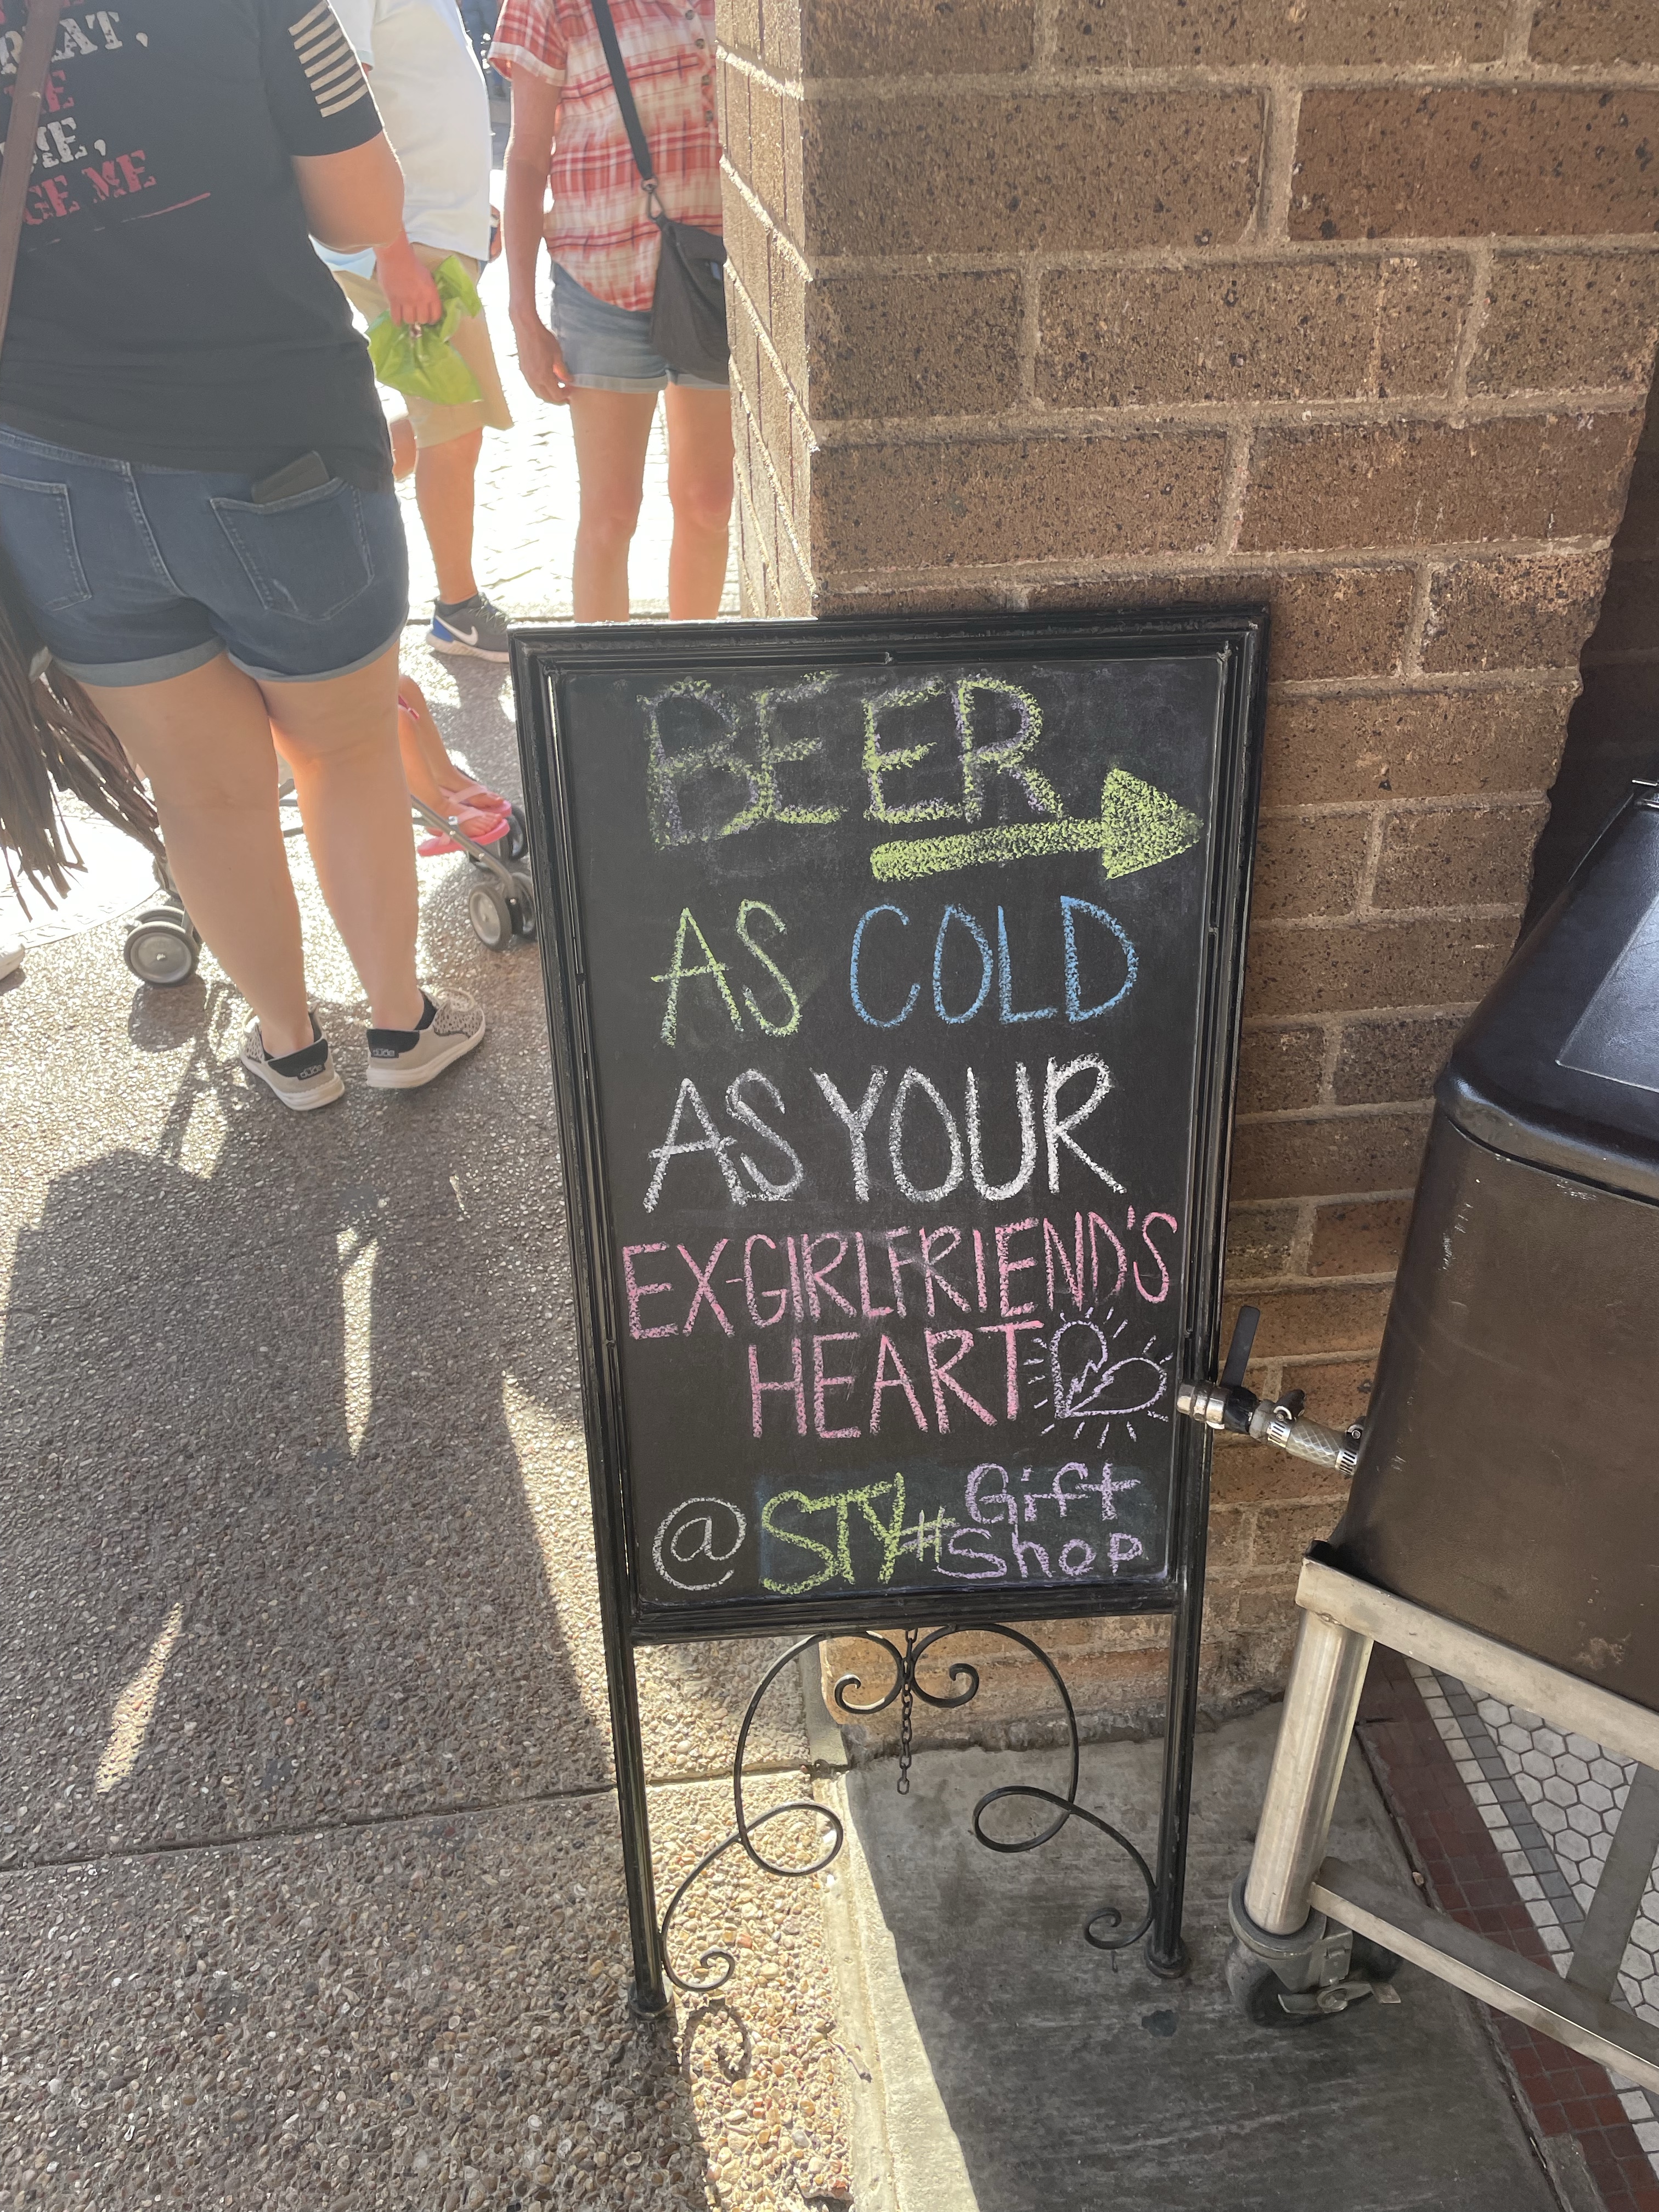 EAT,
ME,
GE ME
BEER
AS COLD
AS YOUR
EX-GIRLFRIEND'S
HEART
@ STY# Gift
Shop